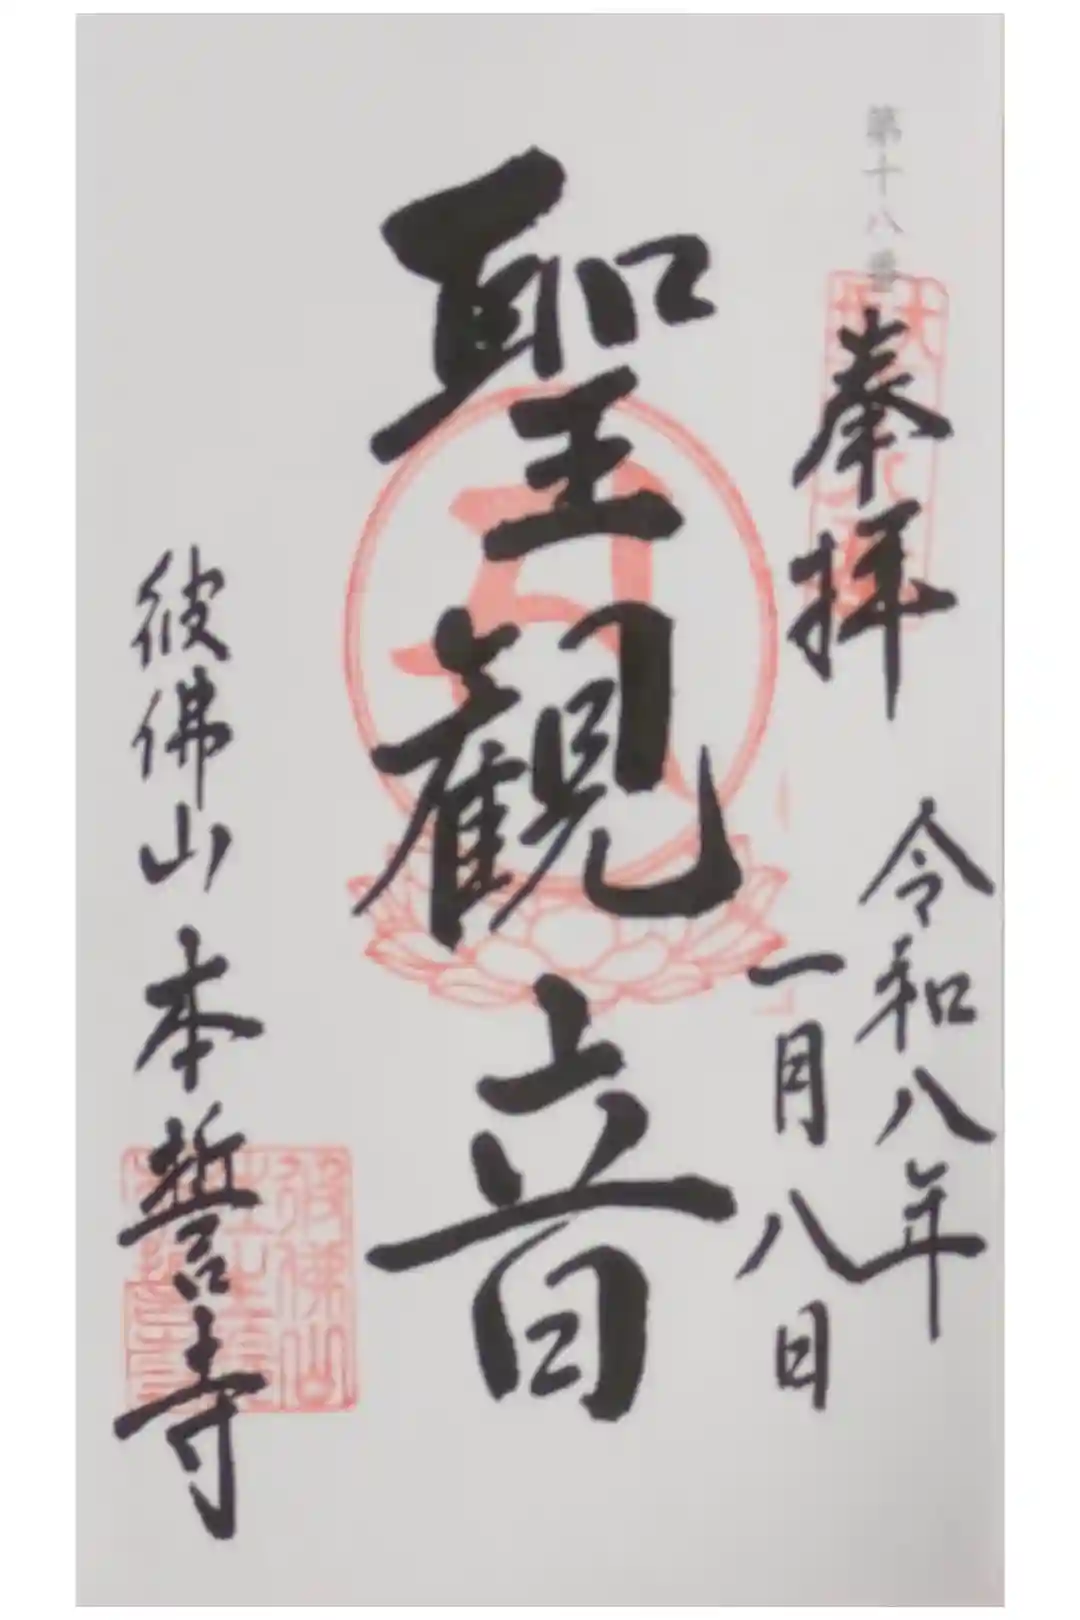 第十八番
奉拝
令和八年
一月八日
聖觀音
彼佛山
本誓寺
彼佛山